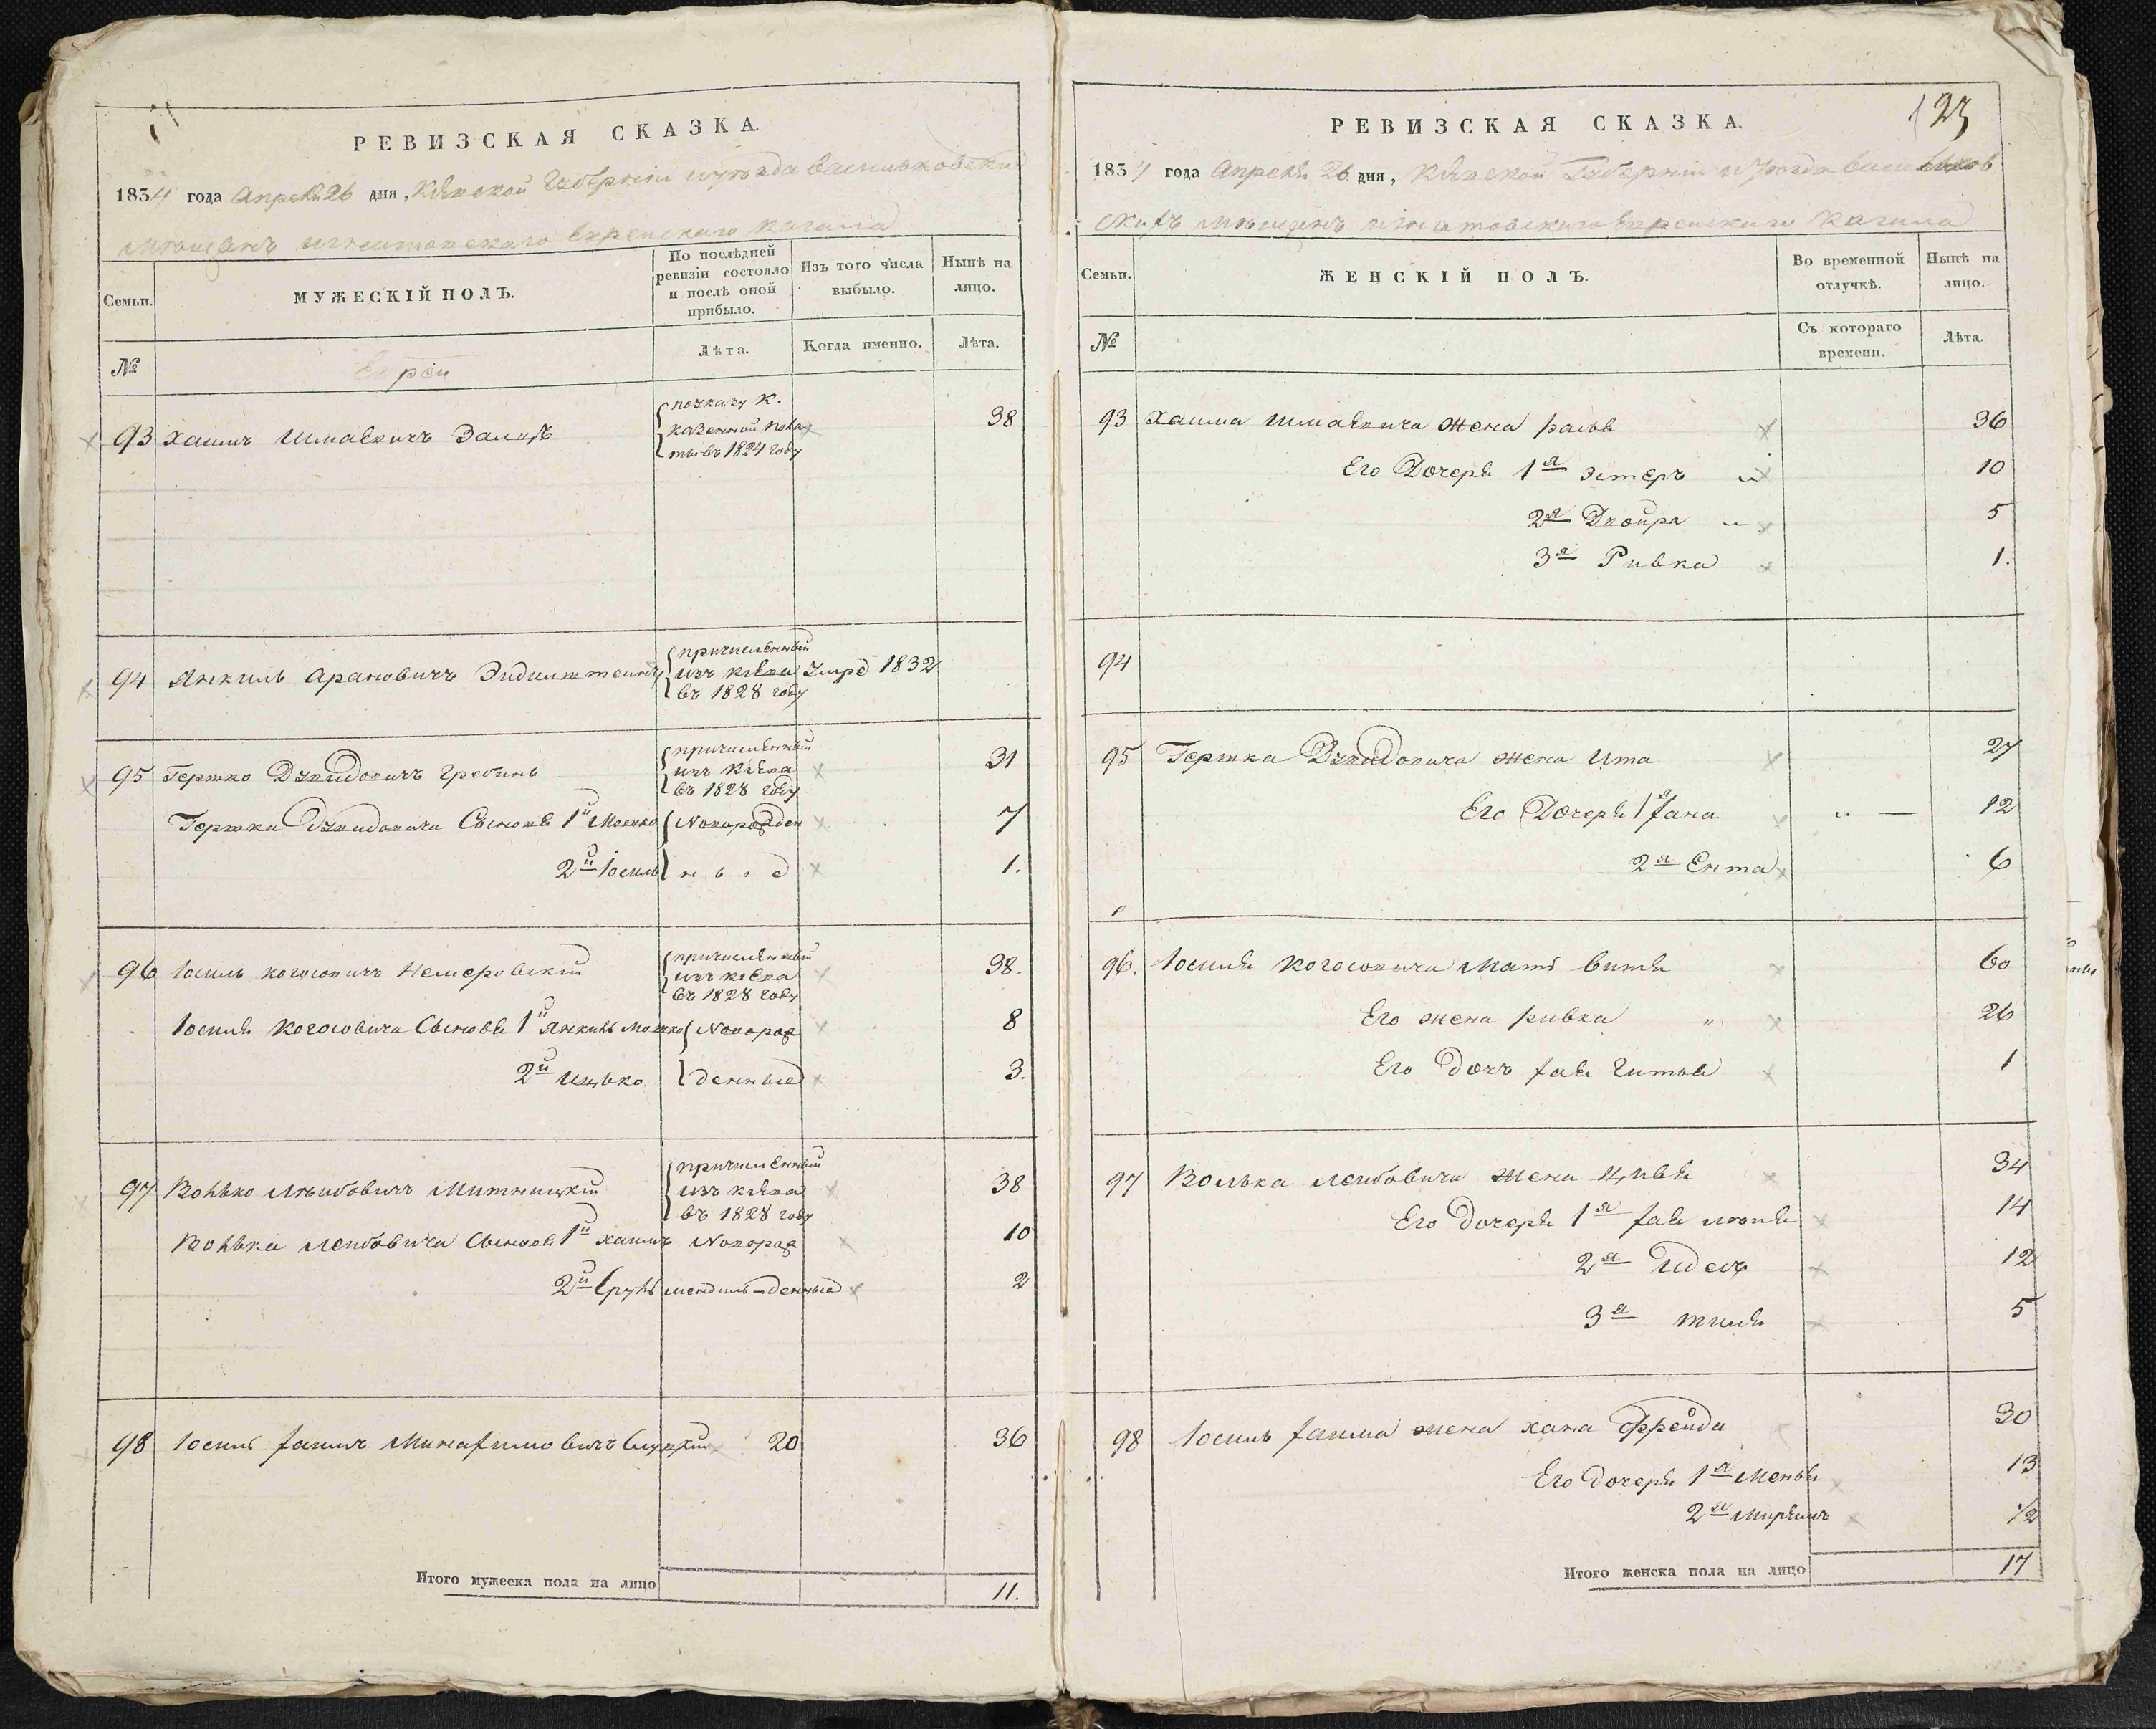 РЕВИЗСКАЯ СКАЗКА.
1834 года Апреля 26 дня, Кіевской Губерніи уезда Васильковски
мѣщанъ Игнатовскаго Еврейскаго Кагала
Семьи.
МУЖЕСКІЙ ПОЛЪ.
По послѣдней ревизіи состояло и послѣ оной прибыло.
Изъ того числа выбыло.
Нынѣ на лицо.
№
Евреи
Лѣта.
Когда именно.
Лѣта.
93 Хаимъ Шмаевичъ 38
казенной пола
ты въ 1824 году
94 Янкиль Арановичъ причисленный
изъ Кіева умре 1832
въ 1828 году
95 Гершко Дувидовичъ причисленный 31
изъ Кіева
въ 1828 году
Гершка Дувидовича Сыновья 1й Мошко Новорожден 7
2й Іосиль ные 1.
96 Іосиль когосовичъ Немеровскій причисленный 38.
изъ Кіева
въ 1828 году
Іосиля Когосовича Сыновья 1й Янкиль Мошко Новорож 8
2й Ицько денные 3.
97 Волько Лейбовичъ Митницкій причисленный 38
изъ Кіева
въ 1828 году
Волька Лейбовича Сыновья 1й Хаимъ Новорож 10
2й Сруль мендиль денные 2
98 Іосиль 20 36
Итого мужеска пола на лицо 11.
РЕВИЗСКАЯ СКАЗКА.
1834 года Апреля 26 дня, Кіевской Губерніи уезда Васильков
скихъ мѣщанъ Игнатовскаго Еврейскаго Кагала
Семьи.
ЖЕНСКІЙ ПОЛЪ.
Во временной отлучкѣ.
Нынѣ на лицо.
№
Съ котораго времени.
Лѣта.
93 Хаима Шмаевича жена 36
Его Дочери 1я Эстеръ 10
2я Двойра 5
3я Ривка 1.
94
95 Гершка Дувидовича жена Ита 27
Его Дочери 1я Хана 12
2я Ента 6
96. Іосиля Когосовича Мать 60
Его жена Ривка 26
Его Дочь Хая Гитля 1
97 Волька Лейбовича жена Цивья 34
Его Дочери 1я Хая 14
2я Идесъ 12
3я 5
98 Іосиль Хаима жена Хана Фрейда 30
Его Дочери 1я 13
2я Миріамъ 1/2
Итого женска пола на лицо 17